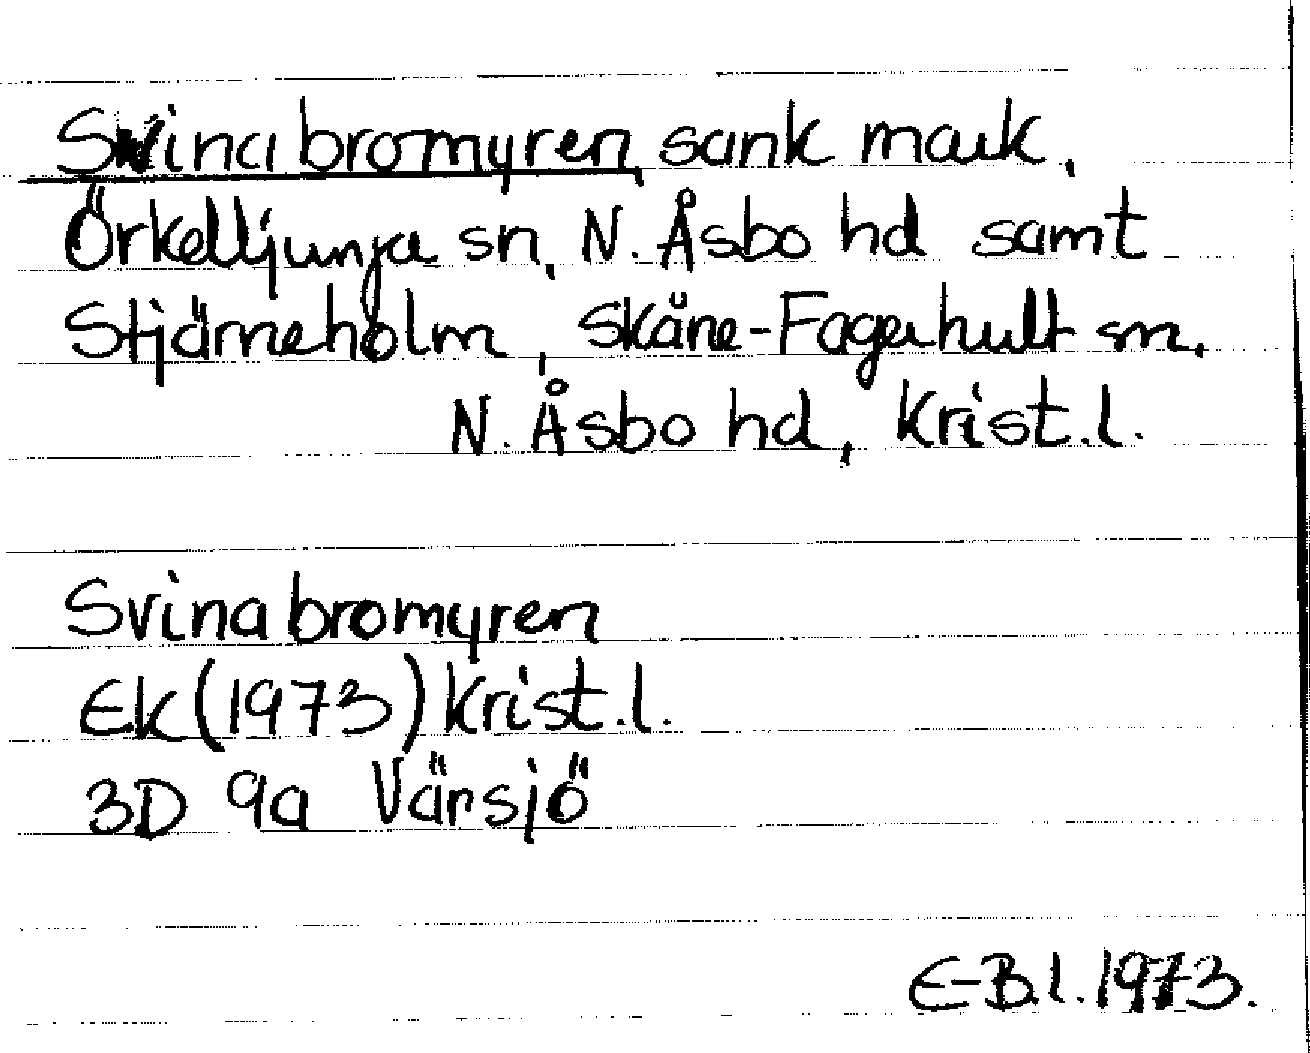 Svinabromyren, sank mark,
Örkelljunga sn, N. Åsbo hd samt
Stjärneholm, Skåne-Fagerhult sn,
N. Åsbo hd, Krist. l.
Svinabromyren
Ek (1973) Krist. l.
3D 9a Värsjö
E-B.l. 1973.